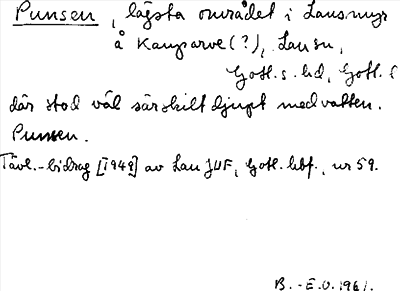 Punsen, lägsta området i Lausmyr
å Kauparve (?), Lau sn,
Gotl. s. hd, Gotl. l
där stod väl särskilt djupt med vatten.
Punsen.
Tävl.-bidrag [1949] av Lau JUF, Gotl. hbf., nr 59.
B.-E.O. 1961.